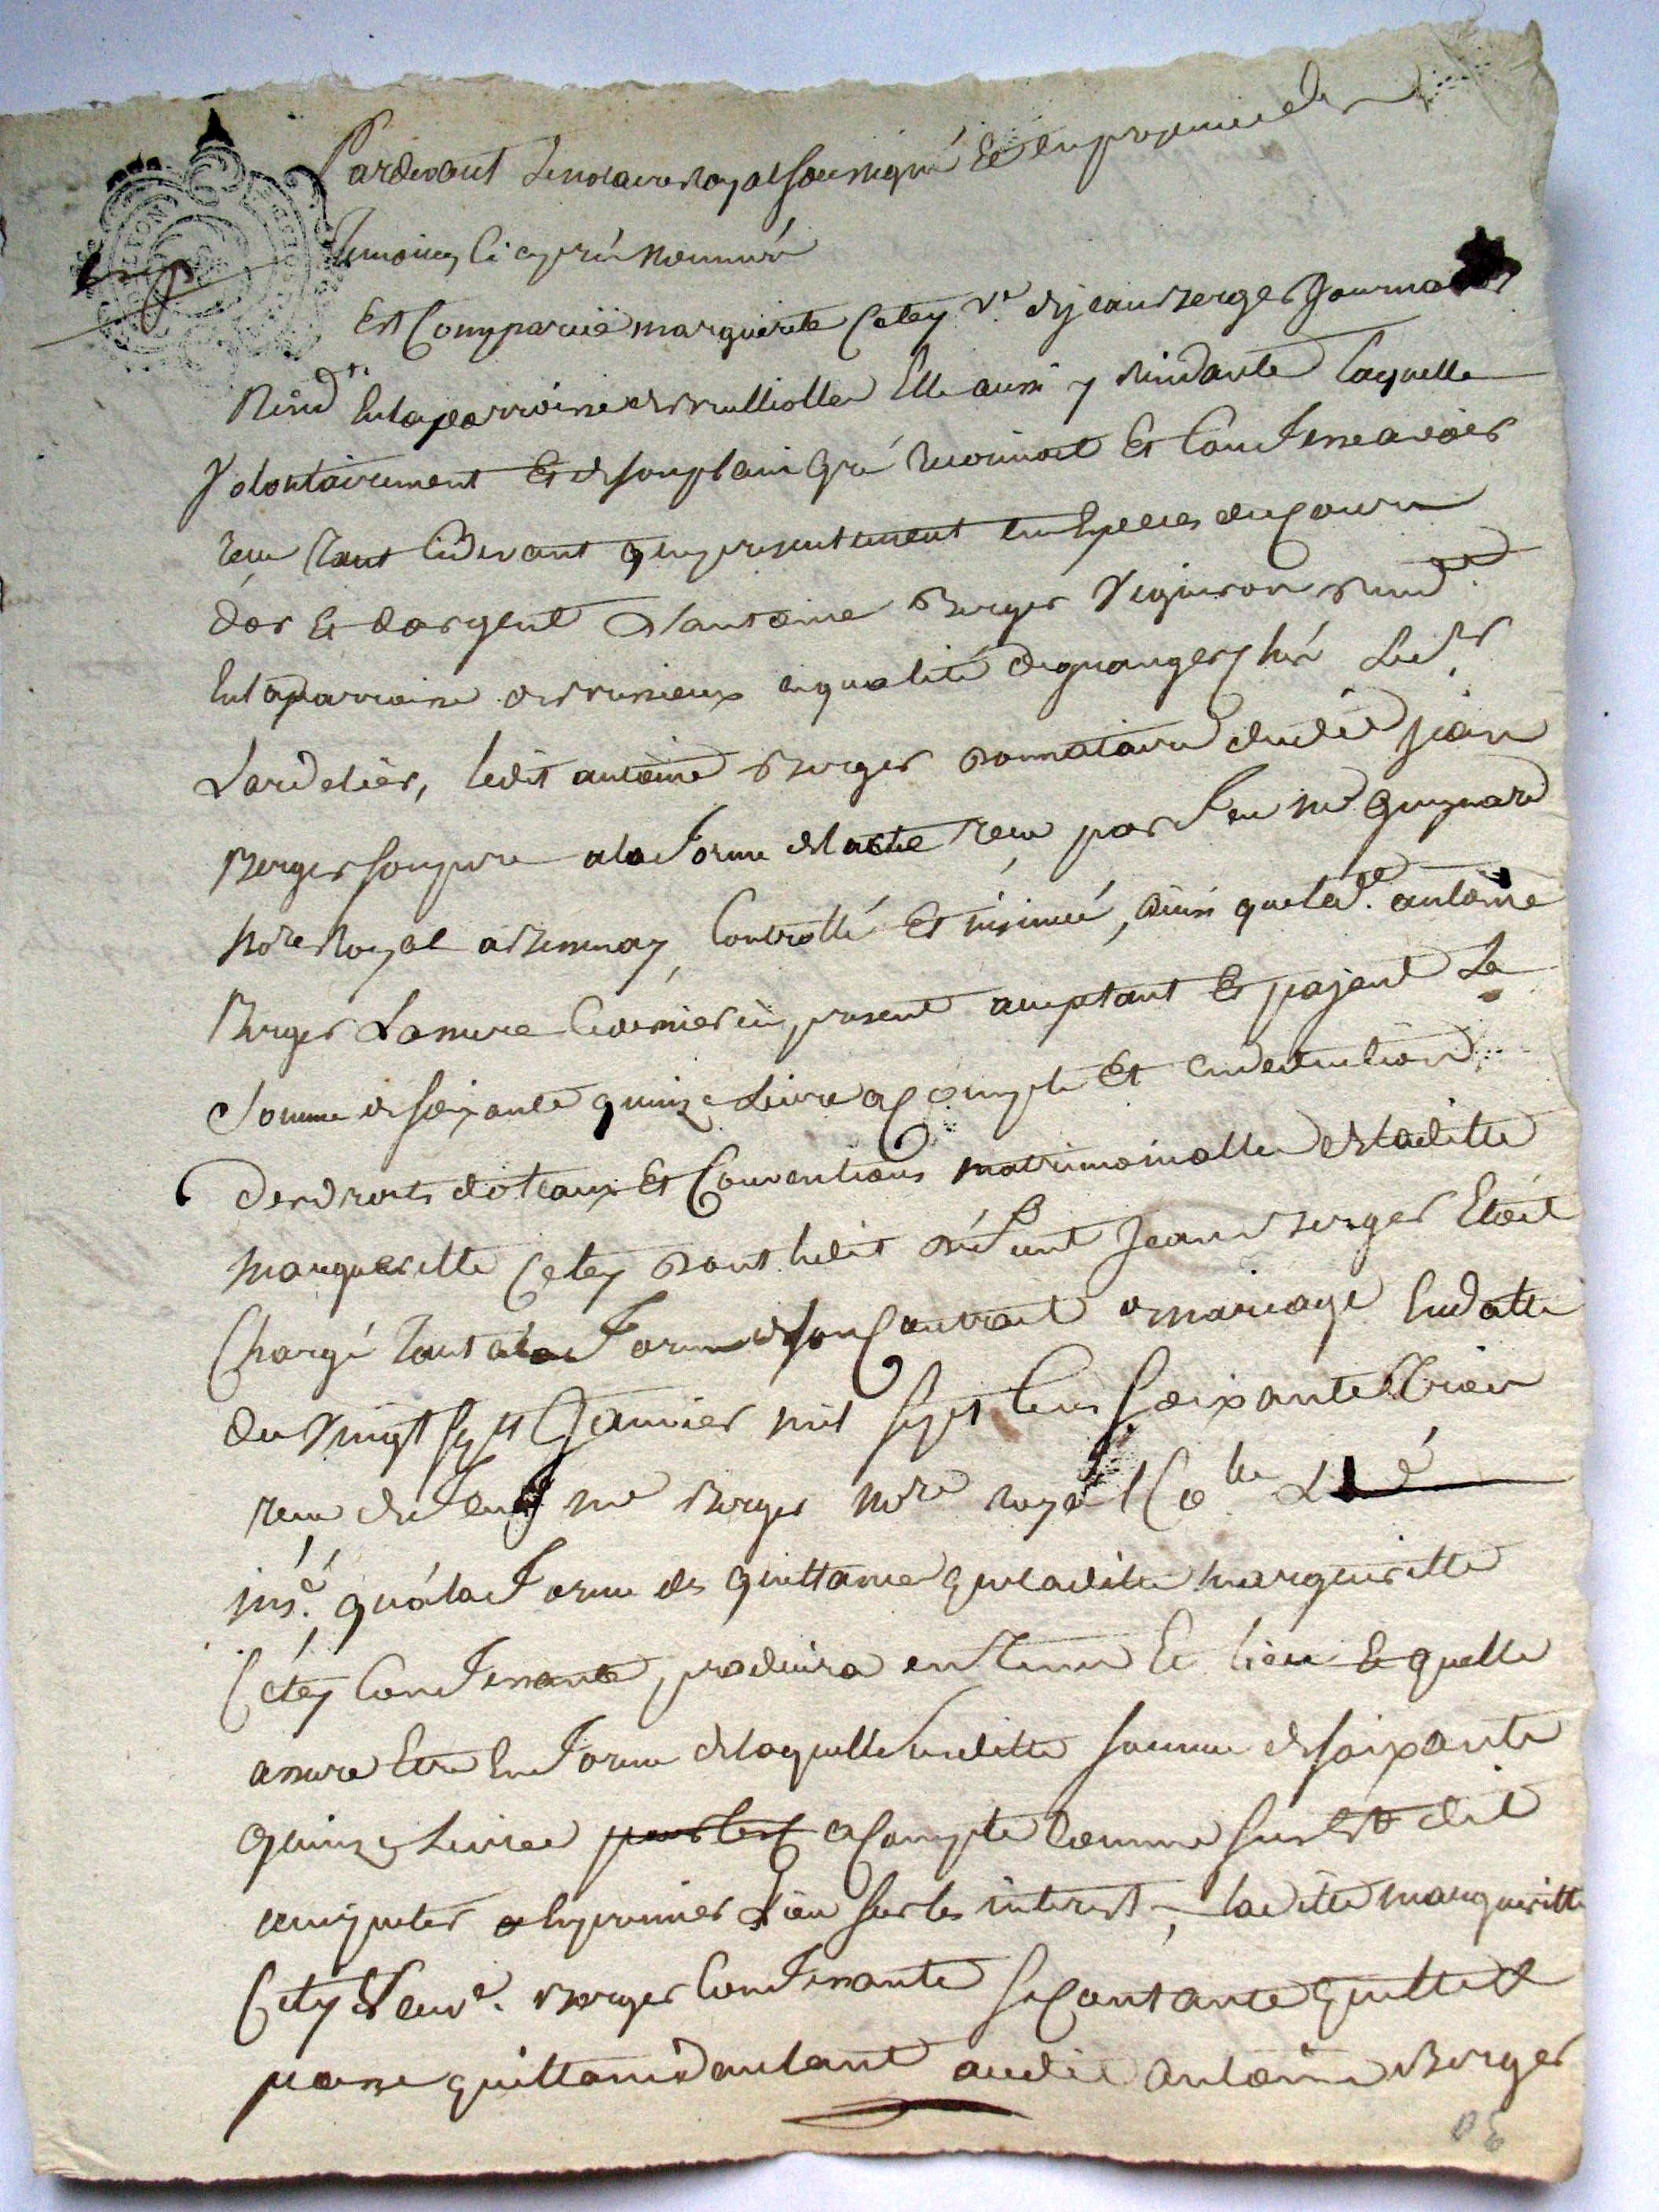 Pardevant le notaire royal soussigné et en presence des
temoins ci aprés nommés
Est Comparüe marguerite Cetey v.e de jean Berger Journalier
Resid.t en la parroisse de rulliolles Elle aussi y residante laquelle
volontairement et de son plain gré reconnoit et Confesse avoir
reçu tant cidevant que presentement en Espèces du Cours
dor et dargent d'antoine Berger vigneron resid.t
en la parroisse de en qualité de granger chés Le S.r
Lardelier, ledit antoine Berger donnataire dudit jean
Berger son pere a la forme de lacte reçu par feu me Guynard
nore Royal a Controllé et insinué, ainsi que led. antoine
Berger Lassure ce dernier icy present acceptant et payent La
Somme de soixante quinze Livres a Compte et en deduction
des droits dotaux et Conventions matrimonialles de laditte
margueritte Cetey dont ledit défunt Jean Berger Etoit
Chargé tant a la forme de son Contrait de mariage en datte
du vingt sept Janvier mil sept cens soixante trois
reçu de feu me Berger nore royal Co.lle
ins.é qu'á la forme des quittances que laditte marguerite
Cetey Confessante, produira en tems et lieu et quelle
assure Etre en forme de laquelle susditte somme de soixante
quinze Livres a Compte comme sus est dit
imputer en premier Lieu sur les interest, laditte marguerite
Cetey veuve Berger Confessante se Contante quitte et
passe quittance dautant audit antoine Berger